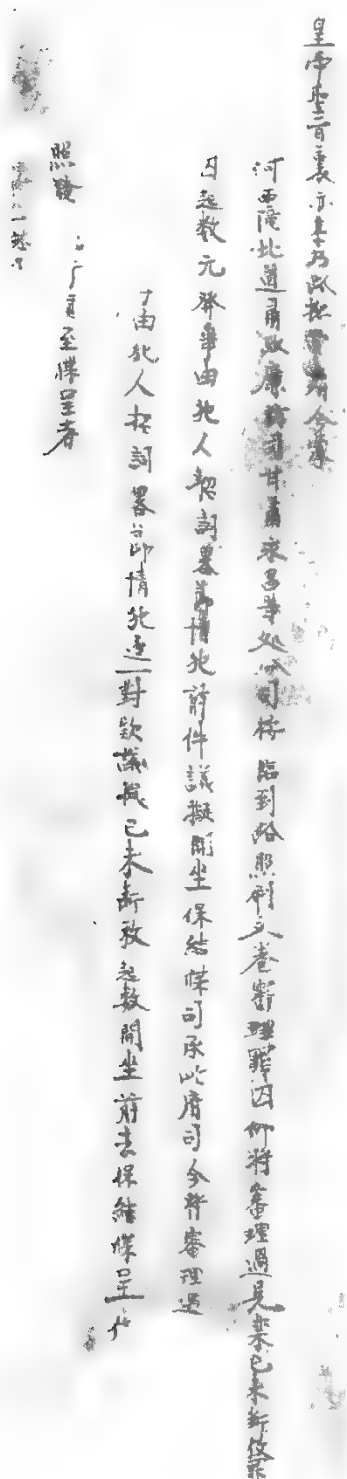 皇帝聖旨裏亦集乃路總管府今準
河西隴北道肅政廉訪司甘肅永昌等處分司按臨到路照刷文卷審理罪囚仰將審理過見禁已未斷放罪
囚起數元發事由犯人招詞畧節情犯前件議擬開坐保結牒司承此府司今將審理過
事由犯人招詞畧節情犯逐一對款議擬已未斷放起數開坐前去保結牒呈伏
照驗 須至牒呈者
一總